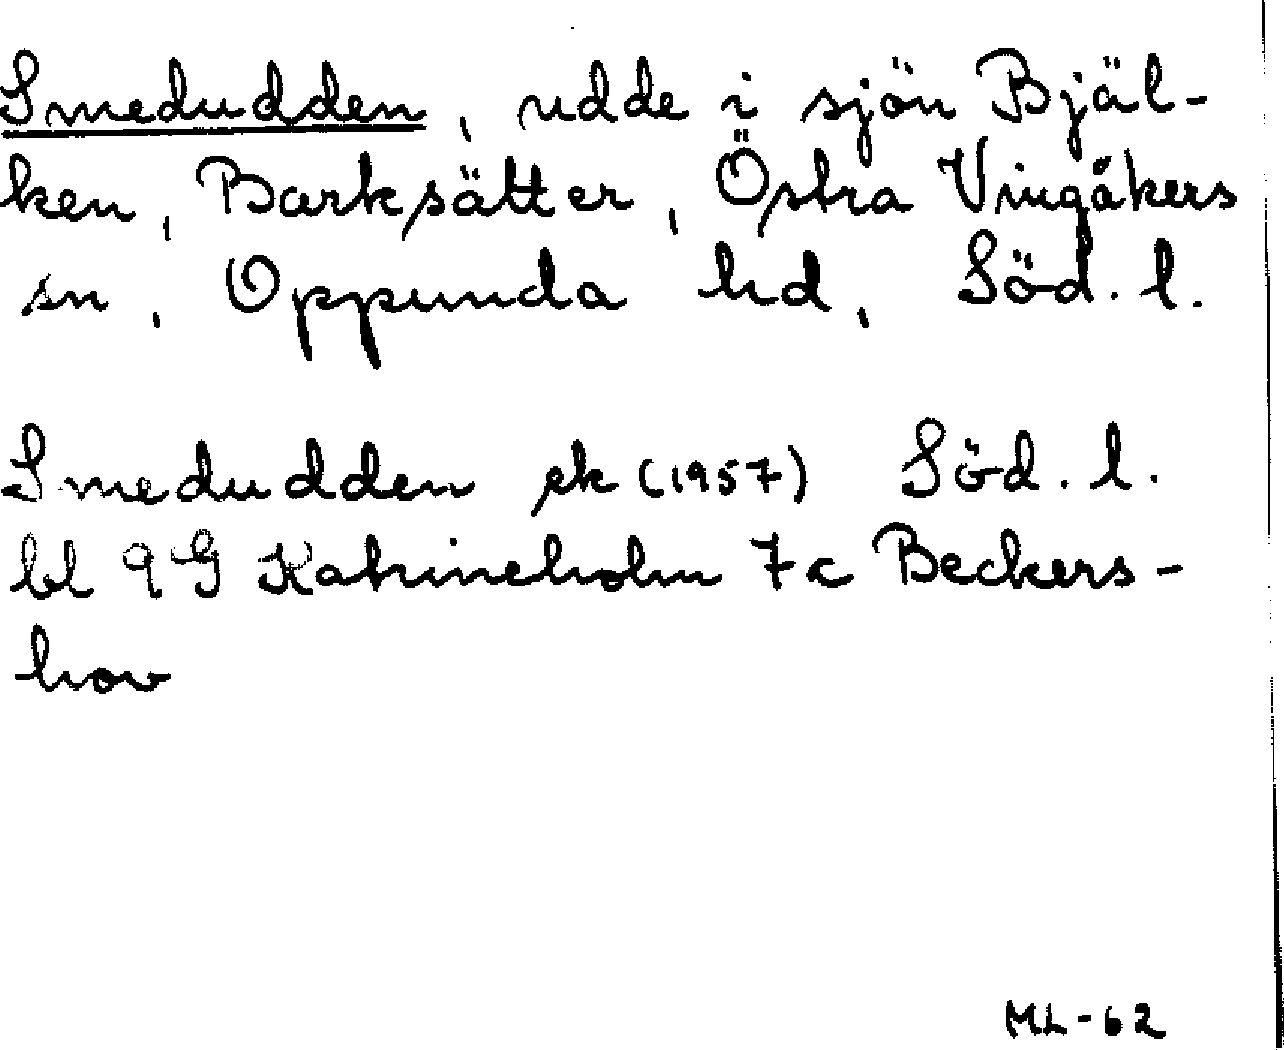 Smedudden, udde i sjön Bjäl-
ken, Barksätter, Östra Vingåkers
sn, Oppunda hd, Söd. l.
Smedudden ek (1957) Söd. l.
bl 9G Katrineholm 7c Beckers-
hov
ML-62